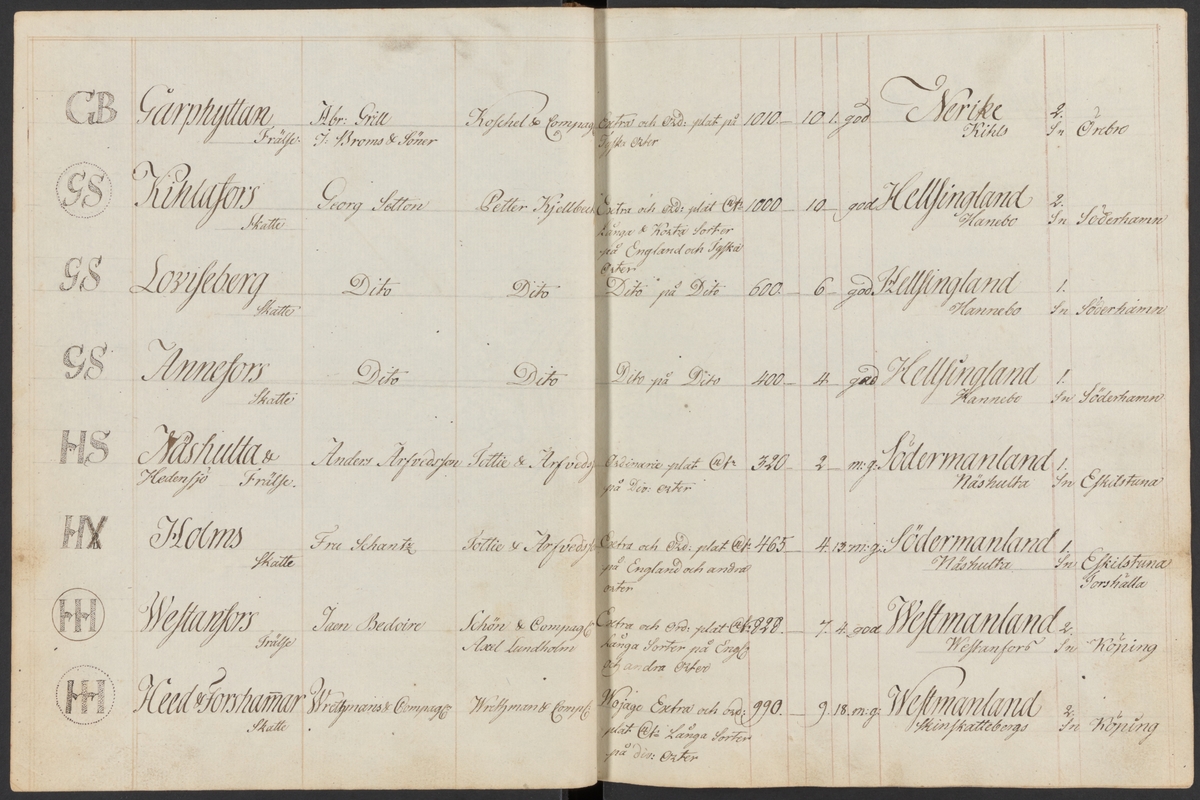 GB Gårphyttan Abr: Grill Koschel & Compag Extra och Ord: plat på 1010 — 10. 1. god Nerike 2.
Frälse. J: Broms & Söner Tyska Orter Kihls Sn Örebro
GS Kihlafors Georg Setton Petter Kjellbeck Extra och Ord: plat 1000 — 10 — god Hellsingland 2.
Skatte Långa & Korta Sorter Hanebo Sn Söderhamn
på England och Tyska
Orter
GS Lovisеberg Dito Dito Dito på Dito 600. — 6 — god Hellsingland 1.
Skatte Hannebo Sn Söderhamn
GS Annefors Dito Dito Dito på Dito 400 — 4. — god Hellsingland 1.
Skatte Hannebo Sn Söderhamn
HS Näshulta & Anders Arfvedsson Tottie & Arfveds Ordinarie plat 320 — 2 — m:g: Södermanland 1.
Hedensjö Frälse. på Div: Orter Näshulta Sn Eskilstuna
HX Holms Fru Schantz Tottie & Arfveds Extra och Ord: plat 465 — 4. 13. m:g: Södermanland 1.
Skatte på England och andra Näshulta Sn Eskilstuna
orter Torshälla
HH Westanfors Jean Bedoire Schön & Compag Extra och Ord: plat 828. — 7. 4. god Westmanland 2.
Frälse Axel Lundholm Långa Sorter på Engl Westanfors Sn Köping
och andra Orter
HH Heed & Forshammar Wretmans & Compag Wretman & Comp Wojage Extra och ord: 990. — 9. 18. m:g: Westmanland 2.
Skatte plat Långa Sorter Skinskattebergs Sn Köping
på div: Orter